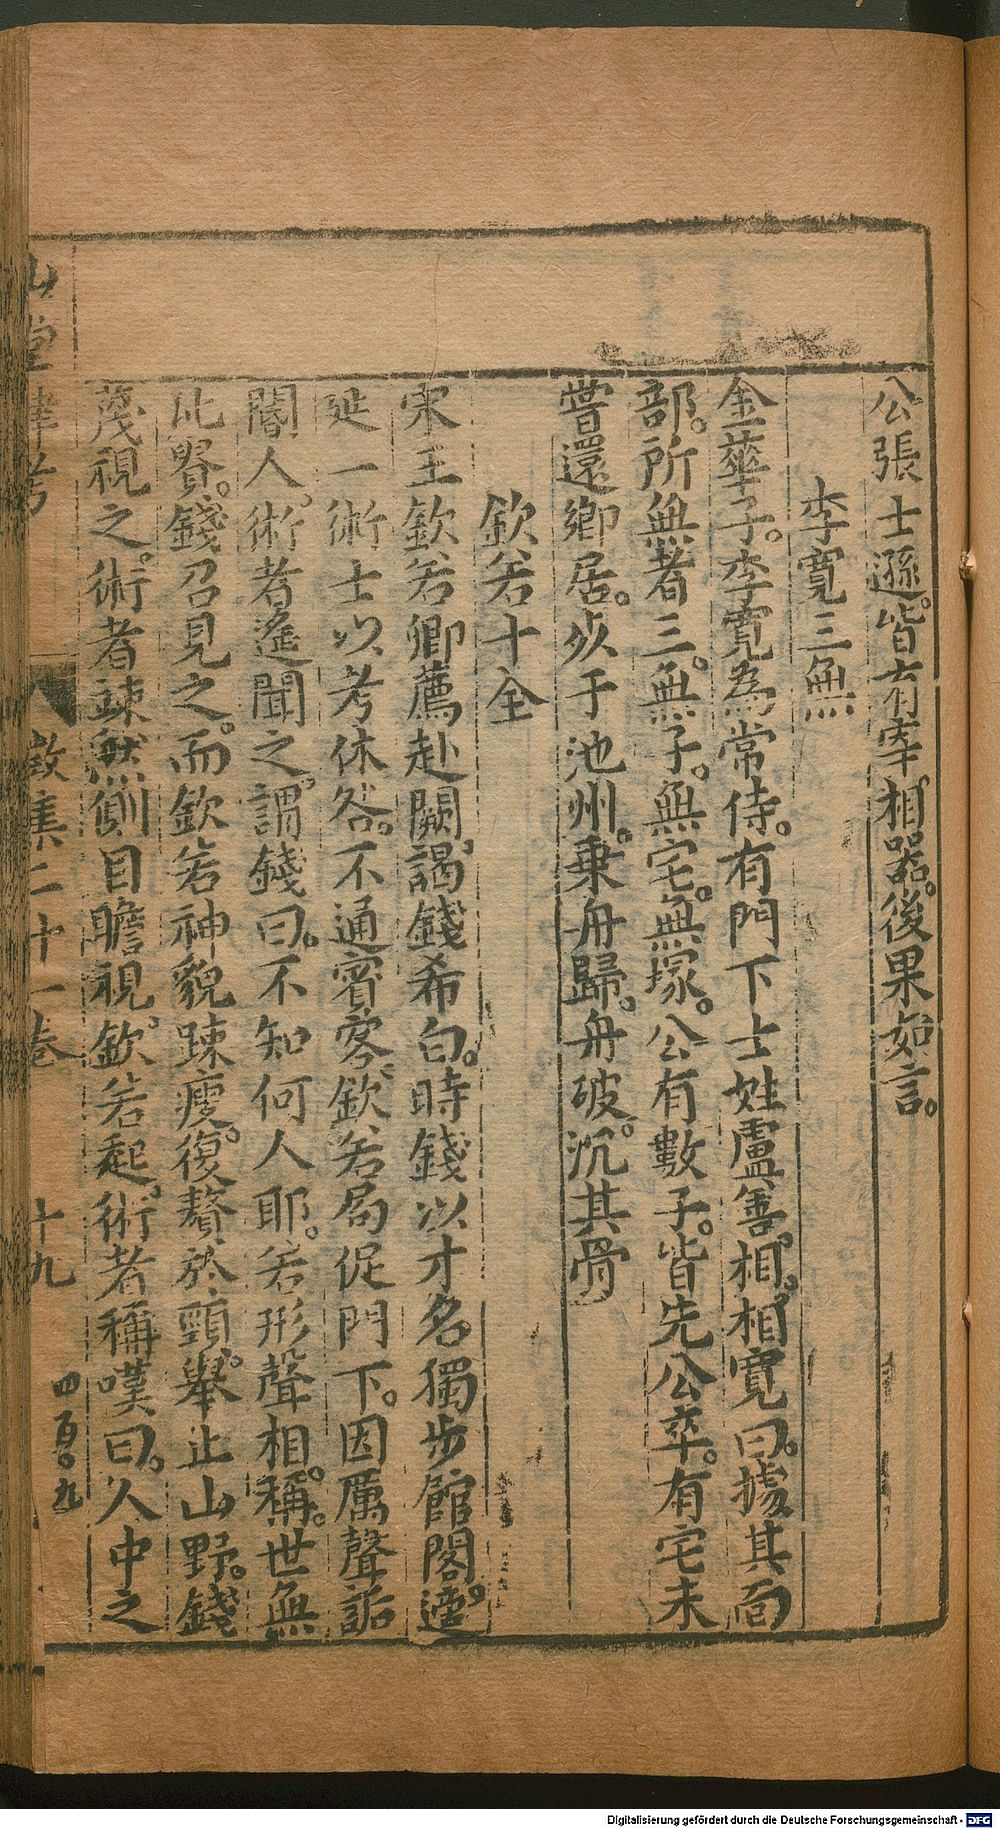 公張士遜。皆有宰相器。後果如言。
李寬三無
金華子。李寬為常侍。有門下士姓盧善相。相寬曰。據其面
部。所無者三。無子。無宅。無塚。公有數子。皆先公卒。有宅未
甞還鄉居。歿于池州。乗舟歸。舟破。沉其骨
欽若十全
宋王欽若鄉薦赴闕。謁錢希白。時錢以才名獨步館閣。適
延一術士以考休咎。不通賓客。欽若局促門下。因厲聲詬
閽人。術者遥聞之。謂錢曰。不知何人耶。若形聲相稱。世無
此貴。錢召見之。而欽若神貌踈瘦。復贅於頸。舉止山野。錢
蔑視之。術者竦然側目瞻視。欽若起。術者稱嘆曰。人中之
山堂肆考
徵集二十一卷
十九
四百〇九
Digitalisierung gefördert durch die Deutsche Forschungsgemeinschaft - DFG